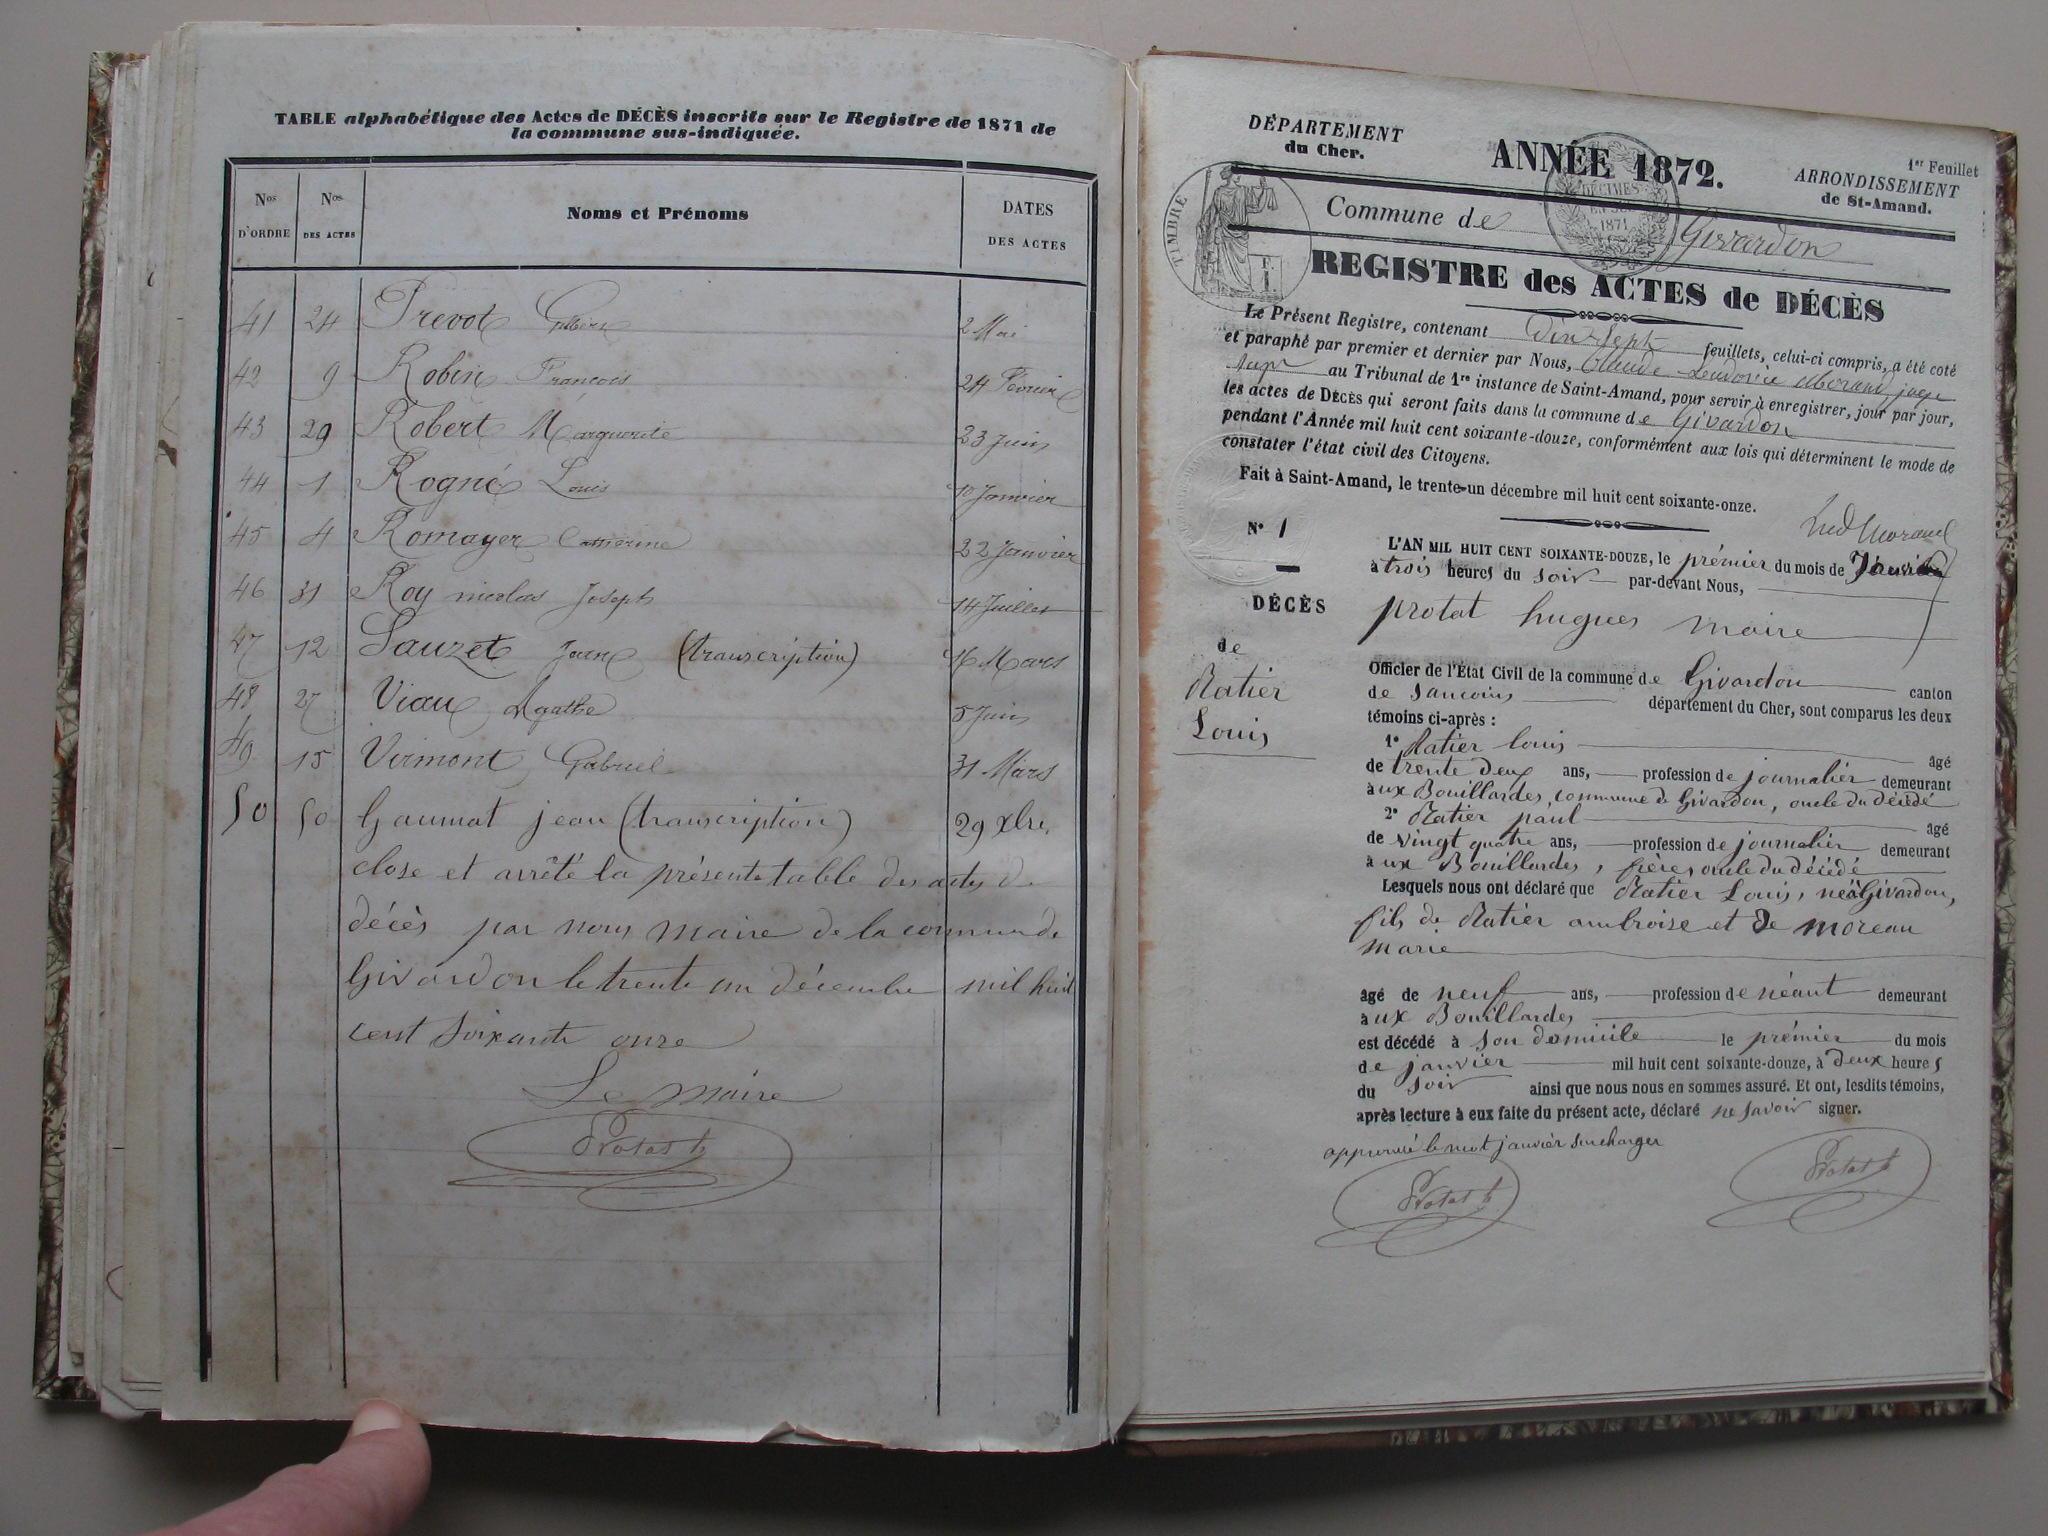 TABLE alphabétique des Actes de DÉCÈS inscrits sur le Registre de 1871 de
la commune sus-indiquée.
Nos D'ORDRE Nos DES ACTES Noms et Prénoms DATES DES ACTES
41 24 Prevot Gilbert 2 Mai
42 9 Robin François 24 Février
43 29 Robert Marguerite 23 Juin
44 1 Rogné Louis 10 Janvier
45 4 Romayer Catherine 22 Janvier
46 31 Roy nicolas Joseph 14 Juillet
47 12 Sauzet Jean (transcription) 16 Mars
48 27 Viau Agathe 5 Juin
49 15 Virmont Gabriel 31 Mars
50 50 Gaumat jean (transcription) 29 Xbre
close et arrêté la présente table des actes de
décès par nous maire de la commune de
Givardon le trente un décembre mil huit
cent soixante onze
Le maire
Protat h
DÉPARTEMENT
du Cher.
ANNÉE 1872.
1er Feuillet
ARRONDISSEMENT
de St-Amand.
TIMBRE
DÉCIMES
EN SUS
1871
F.
1.
Commune de Givardon
REGISTRE des ACTES de DÉCÈS
Le Présent Registre, contenant Dix Sept feuillets, celui-ci compris, a été coté
et paraphé par premier et dernier par Nous, Claude Ludovic Morand, juge
au Tribunal de 1re instance de Saint-Amand, pour servir à enregistrer, jour par jour,
les actes de DÉCÈS qui seront faits dans la commune de Givardon
pendant l'Année mil huit cent soixante-douze, conformément aux lois qui déterminent le mode de
constater l'état civil des Citoyens.
Fait à Saint-Amand, le trente-un décembre mil huit cent soixante-onze.
Lud Morand
N° 1
DÉCÈS
de
Ratier
Louis
L'AN MIL HUIT CENT SOIXANTE-DOUZE, le prémier du mois de Janvier
à trois heures du soir par-devant Nous,
protat hugues maire
Officier de l'État Civil de la commune de Givardon canton
de Sancoins département du Cher, sont comparus les deux
témoins ci-après :
1° Ratier louis âgé
de trente deux ans, profession de journalier demeurant
aux Bouillardes, commune de Givardon, oncle du décédé
2° Ratier paul âgé
de vingt quatre ans, profession de journalier demeurant
aux Bouillardes, frères oncle du décédé
Lesquels nous ont déclaré que Ratier Louis, né à Givardon,
fils de Ratier ambroise et de moreau
marie
âgé de neuf ans, profession de néant demeurant
aux Bouillardes
est décédé à son domicile le prémier du mois
de janvier mil huit cent soixante-douze, à deux heures
du soir ainsi que nous nous en sommes assuré. Et ont, lesdits témoins,
après lecture à eux faite du présent acte, déclaré ne savoir signer.
approuvé le mot janvier surcharger
Protat h
Protat h